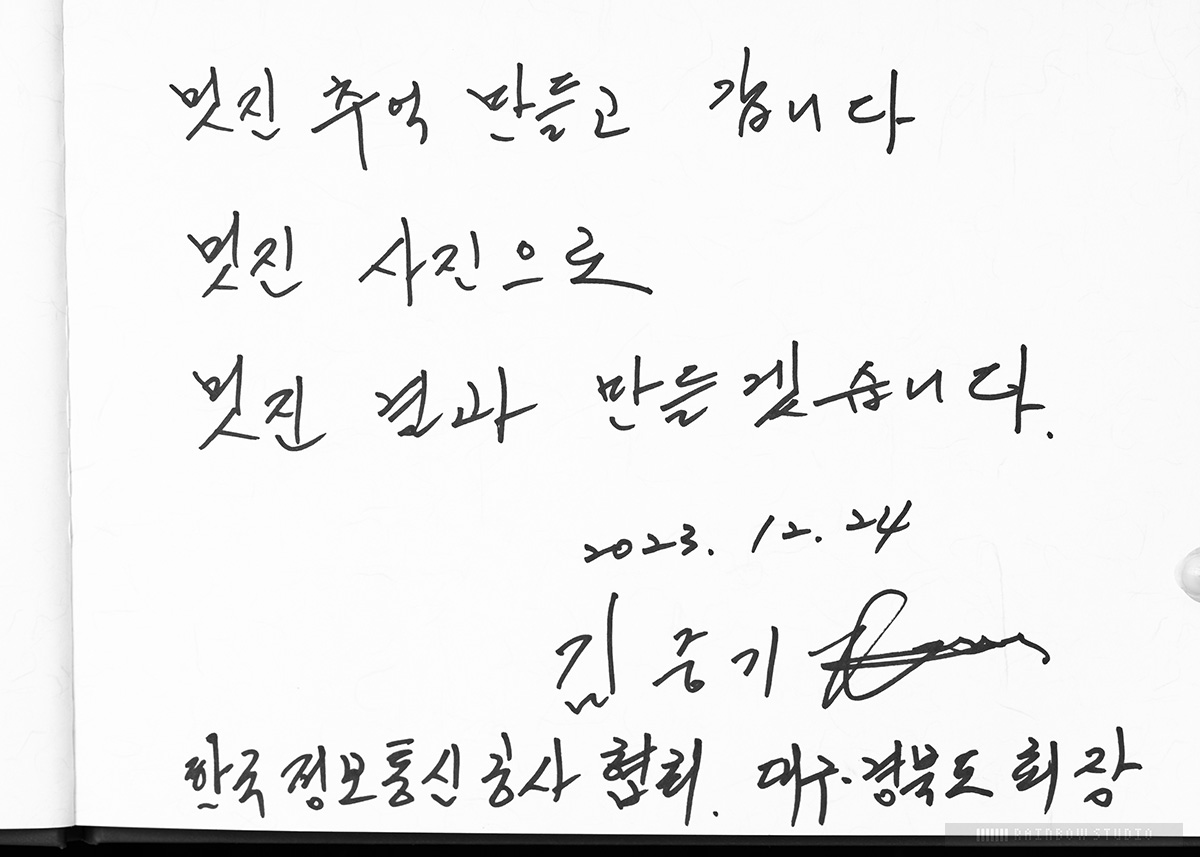 멋진 추억 만들고 갑니다
멋진 사진으로
멋진 결과 만들겠습니다.
2023. 12. 24
김중기
한국정보통신공사 협회. 대구·경북도회장
RAINBOW STUDIO